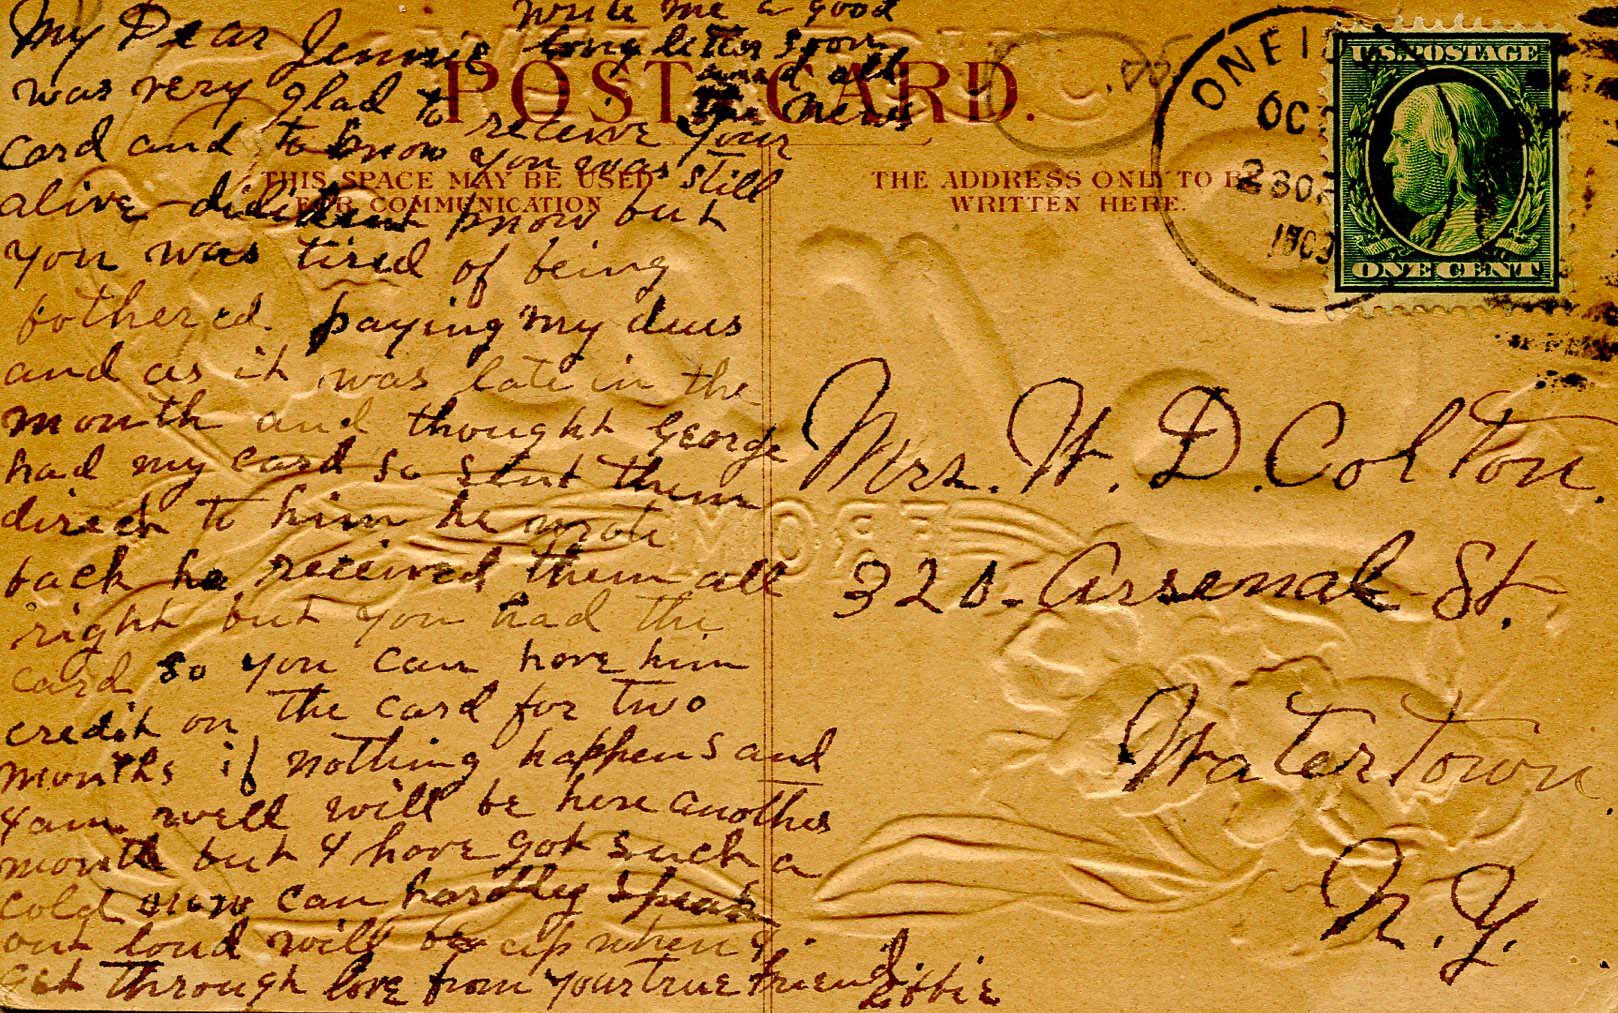 write me a good
long letter soon
and all
the news
My Dear Jennie
was very glad to receive your
card and to know you was still
alive didn't know but
you was tired of being
bothered. paying my dues
and as it was late in the
month and thought George
had my card so sent them
direct to him he wrote
back he received them all
right but you had the
card so you can have him
credit on the card for two
months if nothing happens and
I am well will be here another
month but I have got such a
cold now can hardly speak
out loud will be up when I
get through love from your true friend
Libbie
POST CARD.
THIS SPACE MAY BE USED
FOR COMMUNICATION
THE ADDRESS ONLY TO BE
WRITTEN HERE.
ONEIDA
OCT
230P
1909
U.S. POSTAGE
ONE CENT
Mrs. W. D. Colton.
320 Arsenal St.
Watertown.
N.Y.
FROM